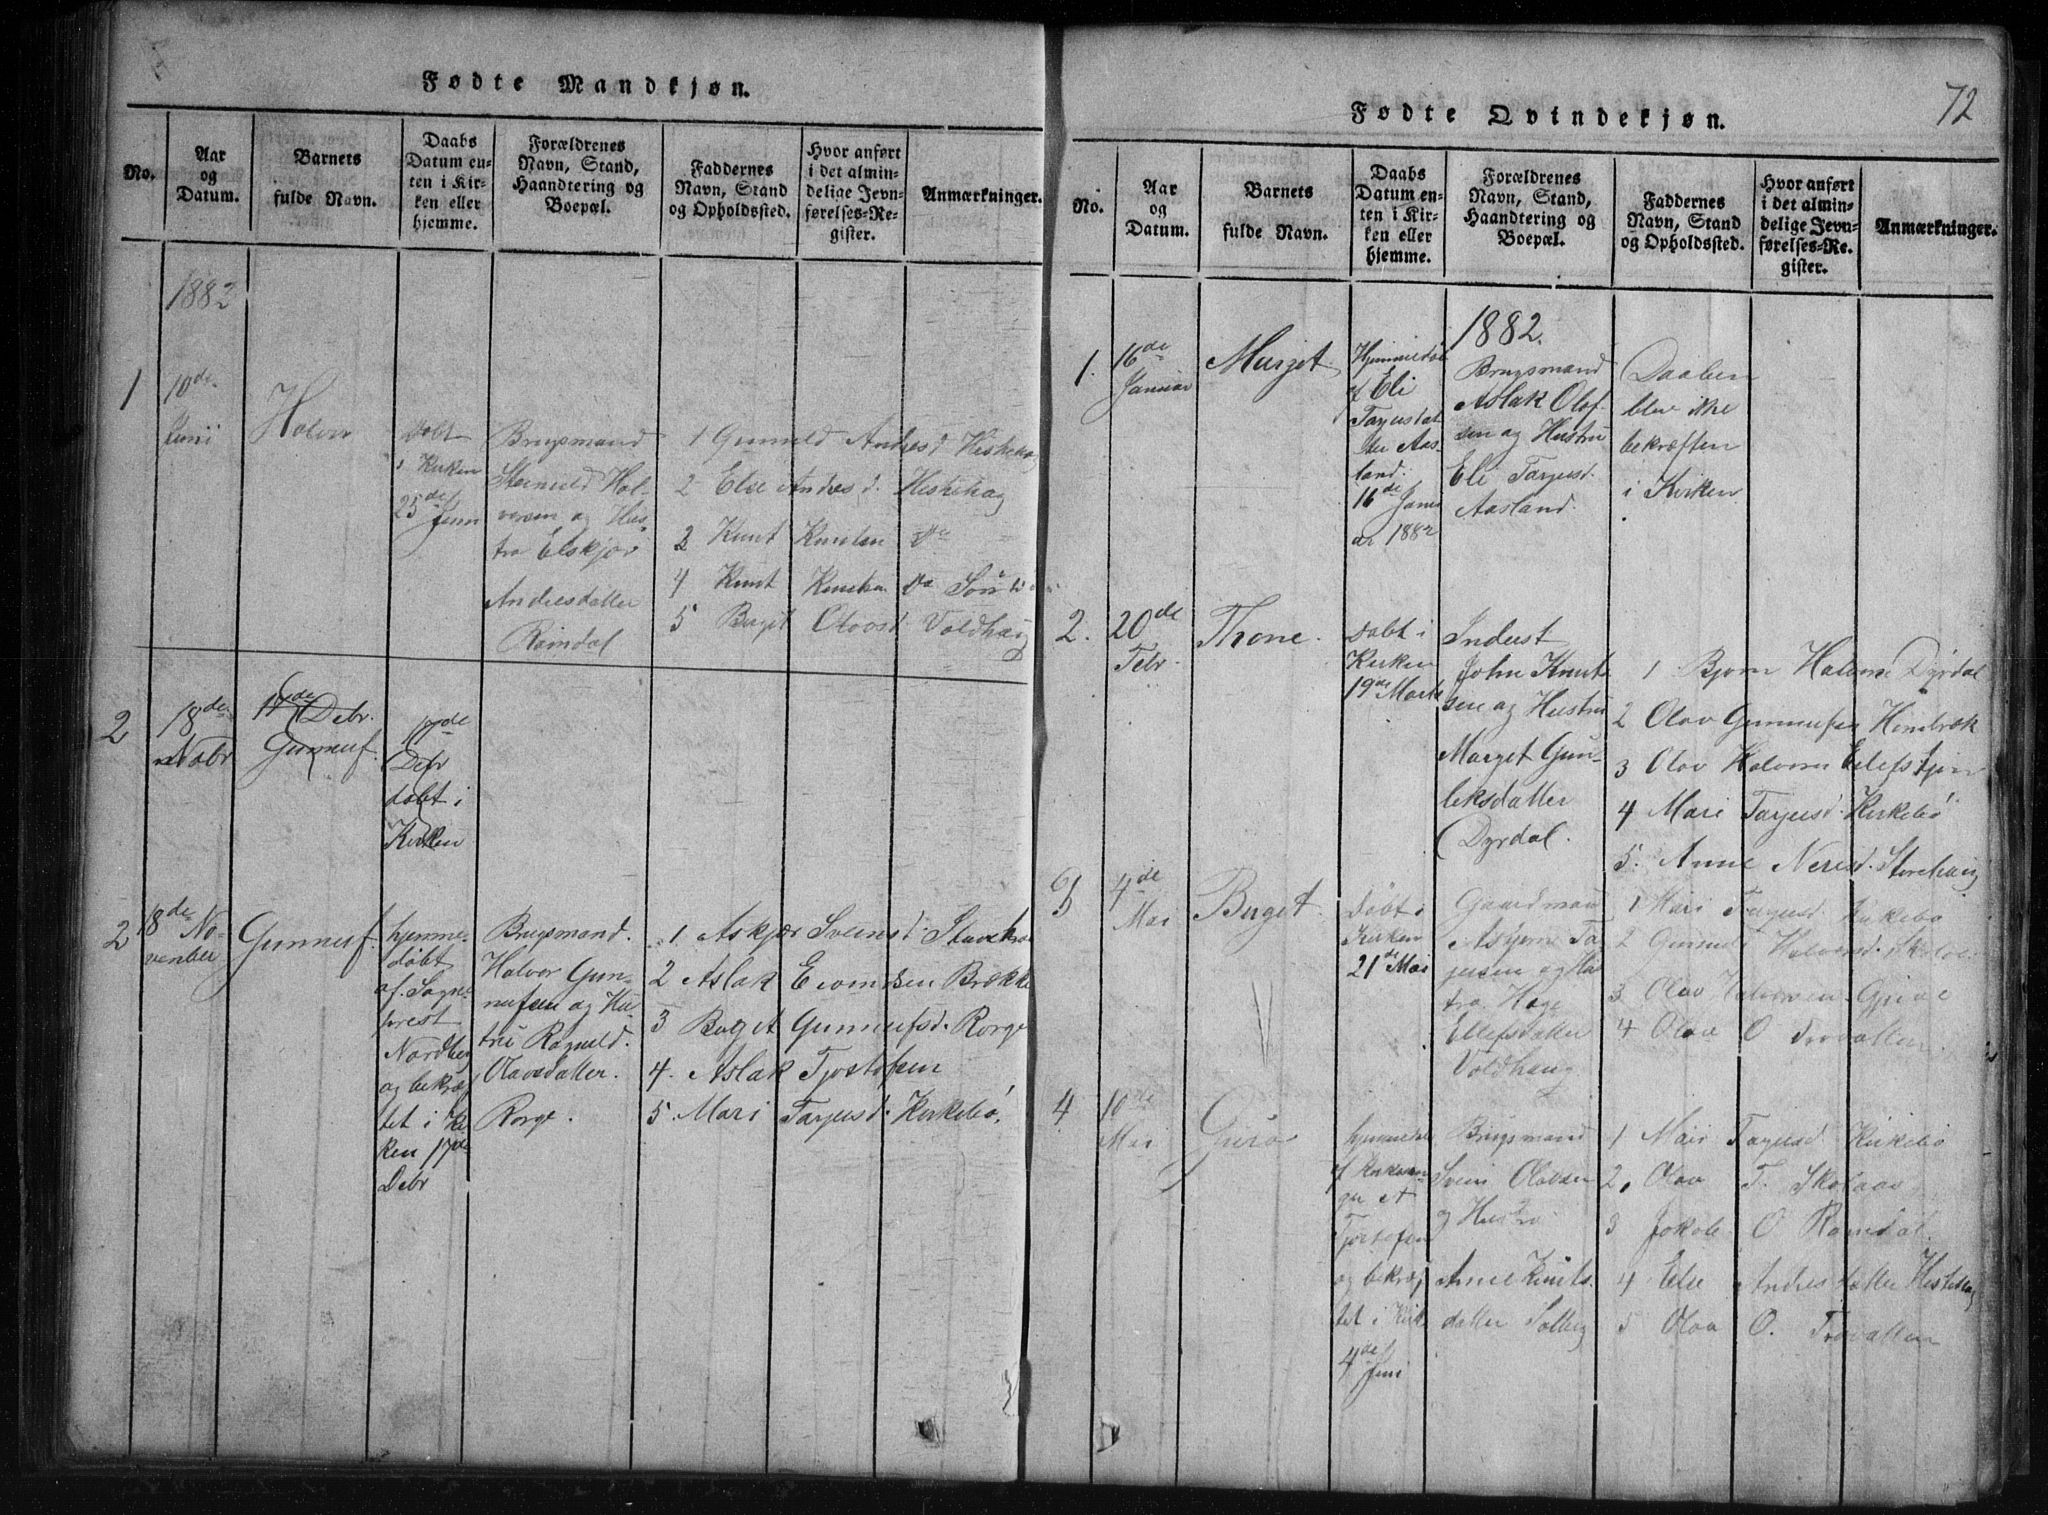 Fødte Mandkjøn.
No.
Aar
og
Datum.
Barnets
fulde Navn.
Daabs
Datum en-
ten i Kir-
ken eller
hjemme.
Forældrenes
Navn, Stand,
Haandtering og
Boepæl.
Faddernes
Navn, Stand
og Opholdssted.
Hvor anført
i det almin-
delige Jevn-
førelses-Re-
gister.
Anmærkninger.
1882
1
10de
Juni
Halvor
Døbt
i Kirken
25de Juni
Brugsmand
Steinuld Hal-
vorsen og Hus-
tro Elskjær
Andresdatter
Romdal
1 Gunuld Andresd Heskehag
2 Else Andresd. Heskehag
3 Knut Knutsen Do
4 Knut Knutsen Do
5 Birgit Olavsd Voldhaug
2
18de
Nobr
17de Debr.
Gunnuf.
17de
Debr
døbt i
Kirken
2
18de No-
venber
Gunnuf.
hjemme-
døbt
af Sogne-
prest
Nordberg
og bekræf
tet i Kir
ken 17de
Debr
Brugsmand.
Halvor Gun-
nufsen og Hu-
stru Ragnild.
Olavsdatter.
Rorge.
1 Askjær Sveinsd
2 Aslak Evondsen Brække
3 Birget Gunnufsd. Rorge
4. Aslak Tjostofsen
5 Mari Tarjeisd. Kirkebø.
72
Fødte Qvindekjøn.
No.
Aar
og
Datum.
Barnets
fulde Navn.
Daabs
Datum en-
ten i Kir-
ken eller
hjemme.
Forældrenes
Navn, Stand,
Haandtering og
Boepæl.
Faddernes
Navn, Stand
og Opholdssted.
Hvor anført
i det almin-
delige Jevn-
førelses-Re-
gister.
Anmærkninger.
1882.
1.
16de
Januar
Marget
Hjemmedøbt
af Eli
Tarjeisdat
ter Aas-
land.
16de Janu
ar 1882
Brugsmand
Aslak Olaf-
sen og Hustru
Eli Tarjeisd.
Aasland.
Daaben
blev ikke
bekræftet
i Kirken
2.
20de
Febr.
Thone.
Døbt i
Kirken
19de Marts
Inderst
John Knut
sen og Hustru
Marget Gun-
leksdatter
Dyrdal.
1 Bjorn Halvors Dyrdal
2 Olav Gunnufsen
3 Olav Halvors
4 Mari Tarjeisd. Kirkebø
5. Anne Neresd. Storehaug
3
4de
Mai
Birget.
Døbt i
Kirken
21de Mai
Gaardman
Asbjørn Ta-
rjeisen og Hus
tro Hæge
Ellefsdatter
Voldhaug
1 Mari Tarjeisd Kirkebø
2 Gunuld Halvorsd.
3 Olav Halvorsen
4 Olav O Trovatten.
4
10de
Mai
Guro
hjemmedøbt
af Kirkesan-
ger A
Tjostofsen
og bekræf
tet i Kirk
4de Juni
Brugsmand
Svein Olavsen
og Hustro
Anne Knuts-
datter Solberg
1 Mari Tarjeisd Kirkebø
2. Olav T. Skolaas
3 Jakob O Ramdal.
4 Else Andresdatter Heskehag
5 Olav O. Trovatten